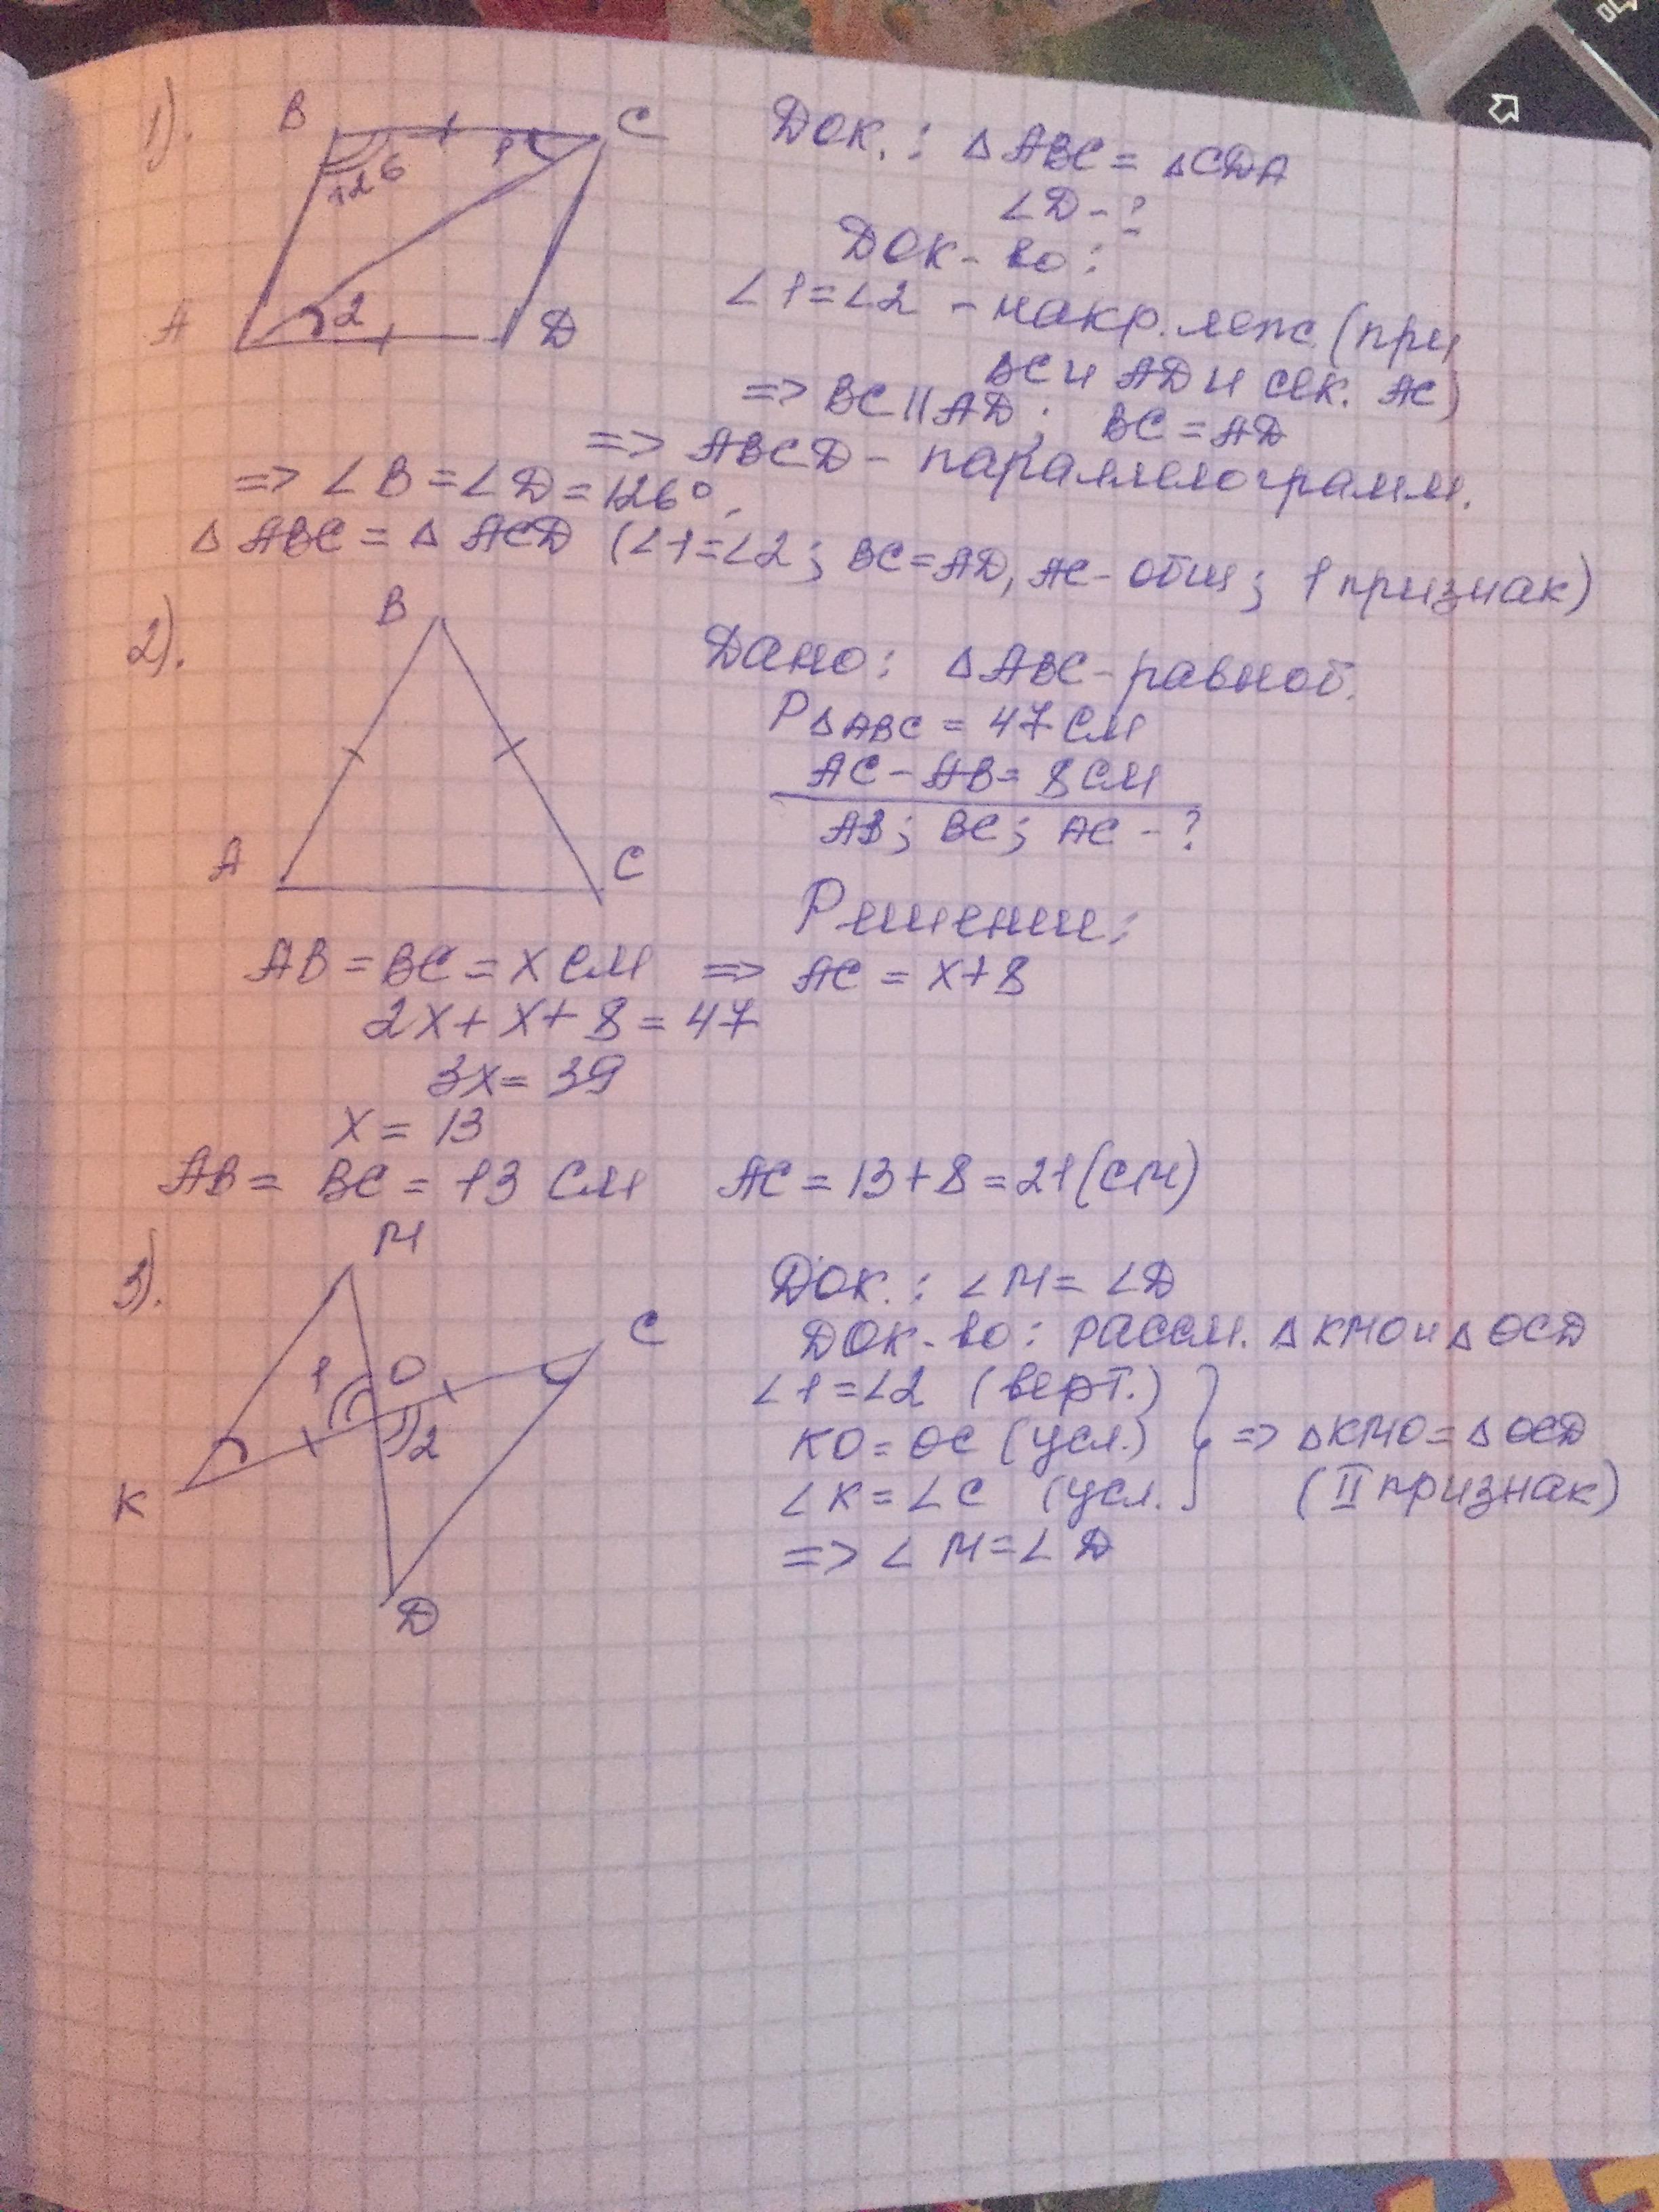 1).
B
C
126
1
2
A
D
Док.: △ABC = △CDA
∠D - ?
Док-во:
∠1=∠2 - накр. леж. (при
BC и AD и сек. AC)
=> BC || AD; BC = AD
=> ABCD - параллелограмм.
=> ∠B = ∠D = 126°,
△ABC = △ACD (∠1=∠2; BC=AD, AC-общ; 1 признак)
2).
B
A
C
Дано: △ABC-равноб.
P△ABC = 47 см
AC - AB = 8 см
AB; BC; AC - ?
Решение:
AB = BC = x см => AC = x+8
2x + x + 8 = 47
3x = 39
x = 13
AB = BC = 13 см AC = 13+8 = 21 (см)
3).
M
C
1
O
2
K
D
Док.: ∠M = ∠D
Док-во: рассм. △KMO и △OCD
∠1=∠2 (верт.)
KO = OC (усл.) => △KMO = △OCD
∠K = ∠C (усл. (II признак)
=> ∠M = ∠D